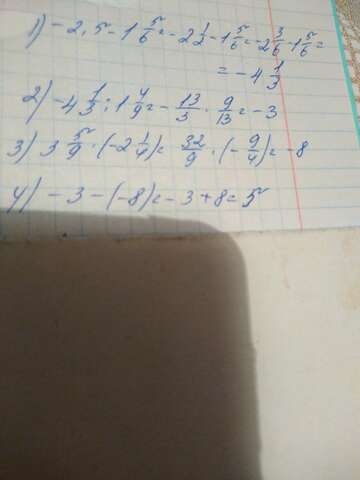 1) -2,5 - 1 5/6 = -2 1/2 - 1 5/6 = -2 3/6 - 1 5/6 =
= -4 1/3
2) -4 1/3 : 1 4/9 = - 13/3 · 9/13 = -3
3) 3 5/9 · (-2 1/4) = 32/9 · (- 9/4) = -8
4) -3 - (-8) = -3 + 8 = 5